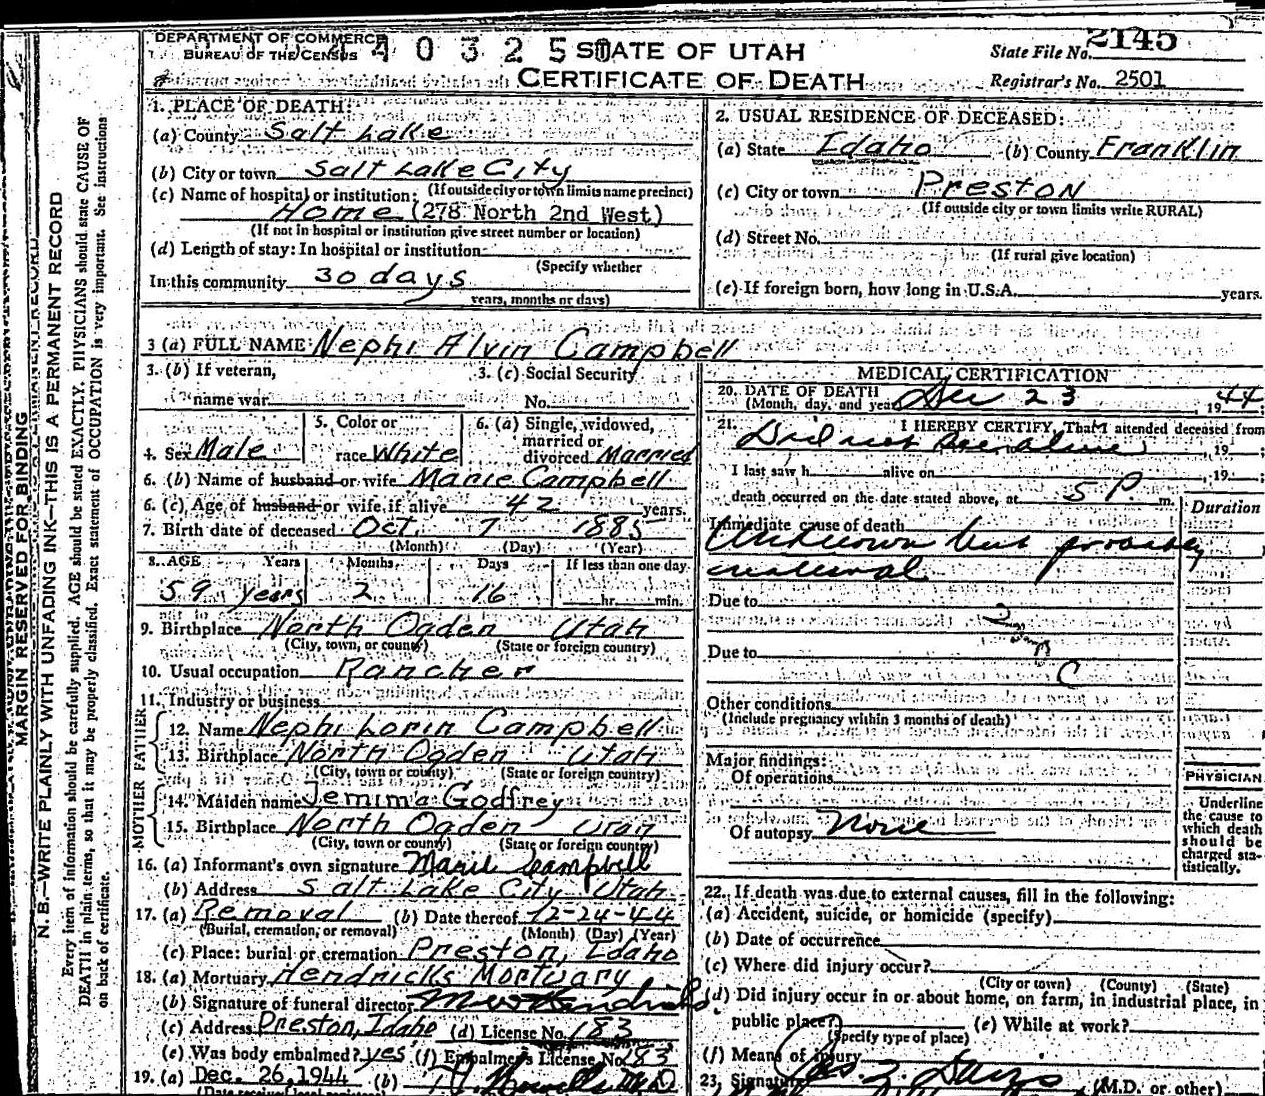 DEPARTMENT OF COMMERCE
BUREAU OF THE CENSUS
4 0 3 2 5 0
STATE OF UTAH
CERTIFICATE OF DEATH
State File No. 2145
Registrar's No. 2501
MARGIN RESERVED FOR BINDING
N. B.—WRITE PLAINLY WITH UNFADING INK—THIS IS A PERMANENT RECORD
Every item of information should be carefully supplied. AGE should be stated EXACTLY. PHYSICIANS should state CAUSE OF
DEATH in plain terms, so that it may be properly classified. Exact statement of OCCUPATION is very important. See instructions
on back of certificate.
1. PLACE OF DEATH:
(a) County Salt Lake
(b) City or town Salt Lake City
(If outside city or town limits name precinct)
(c) Name of hospital or institution:
Home (278 North 2nd West)
(If not in hospital or institution give street number or location)
(d) Length of stay: In hospital or institution
(Specify whether
In this community 30 days
years, months or days)
2. USUAL RESIDENCE OF DECEASED:
(a) State Idaho (b) County Franklin
(c) City or town Preston
(If outside city or town limits write RURAL)
(d) Street No.
(If rural give location)
(e) If foreign born, how long in U.S.A. years.
3 (a) FULL NAME Nephi Alvin Campbell
3. (b) If veteran, name war
3. (c) Social Security No.
4. Sex Male
5. Color or race White
6. (a) Single, widowed, married or divorced Married
6. (b) Name of husband or wife Marie Campbell
6. (c) Age of husband or wife if alive 42 years.
7. Birth date of deceased Oct. 7 1885
(Month) (Day) (Year)
8. AGE Years Months Days If less than one day
59 years 2 16 hr. min.
9. Birthplace North Ogden Utah
(City, town, or county) (State or foreign country)
10. Usual occupation Rancher
11. Industry or business
FATHER
12. Name Nephi Lorin Campbell
13. Birthplace North Ogden Utah
(City, town or county) (State or foreign country)
MOTHER
14. Maiden name Jemima Godfrey
15. Birthplace North Ogden Utah
(City, town or county) (State or foreign country)
16. (a) Informant's own signature Marie Campbell
(b) Address Salt Lake City Utah
17. (a) Removal (b) Date thereof 12-24-44
(Burial, cremation, or removal) (Month) (Day) (Year)
(c) Place: burial or cremation Preston, Idaho
18. (a) Mortuary Hendricks Mortuary
(b) Signature of funeral director
(c) Address Preston, Idaho (d) License No. 183
(e) Was body embalmed? yes (f) Embalmer's License No. 183
19. (a) Dec. 26, 1944 (b)
MEDICAL CERTIFICATION
20. DATE OF DEATH
(Month, day, and year) Dec 23, 1944;
21. I HEREBY CERTIFY, That I attended deceased from
Did not see alive, 19 ;
I last saw h alive on , 19 ;
death occurred on the date stated above, at 5 P. m.
Duration
Immediate cause of death
Unknown but probably
natural
Due to
Due to
Other conditions
(Include pregnancy within 3 months of death)
Major findings:
Of operations
Of autopsy None
PHYSICIAN
Underline
the cause to
which death
should be
charged sta-
tistically.
22. If death was due to external causes, fill in the following:
(a) Accident, suicide, or homicide (specify)
(b) Date of occurrence
(c) Where did injury occur?
(City or town) (County) (State)
(d) Did injury occur in or about home, on farm, in industrial place, in
public place? (e) While at work?
(Specify type of place)
(f) Means of injury
23. Signature (M.D. or other)